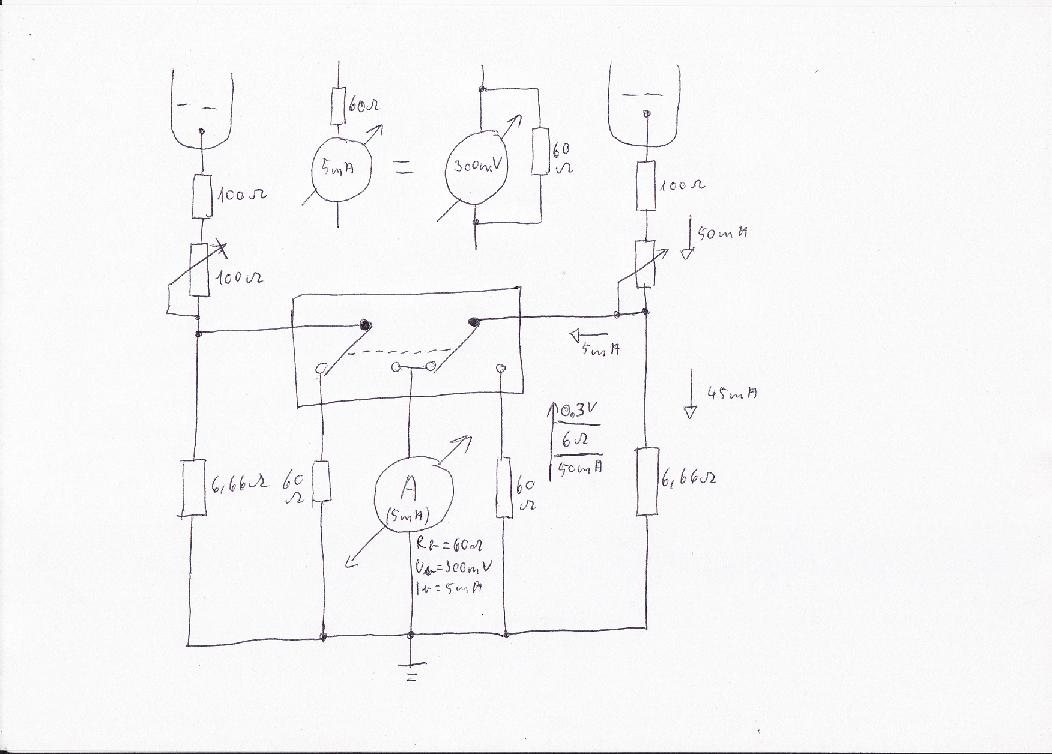 60Ω
5mA
=
300mV
60
Ω
100Ω
100Ω
100Ω
50mA
5mA
45mA
0.3V
6Ω
50mA
6,66Ω
60
Ω
A
(5mA)
60
Ω
6,66Ω
=60Ω
=300mV
=5mA